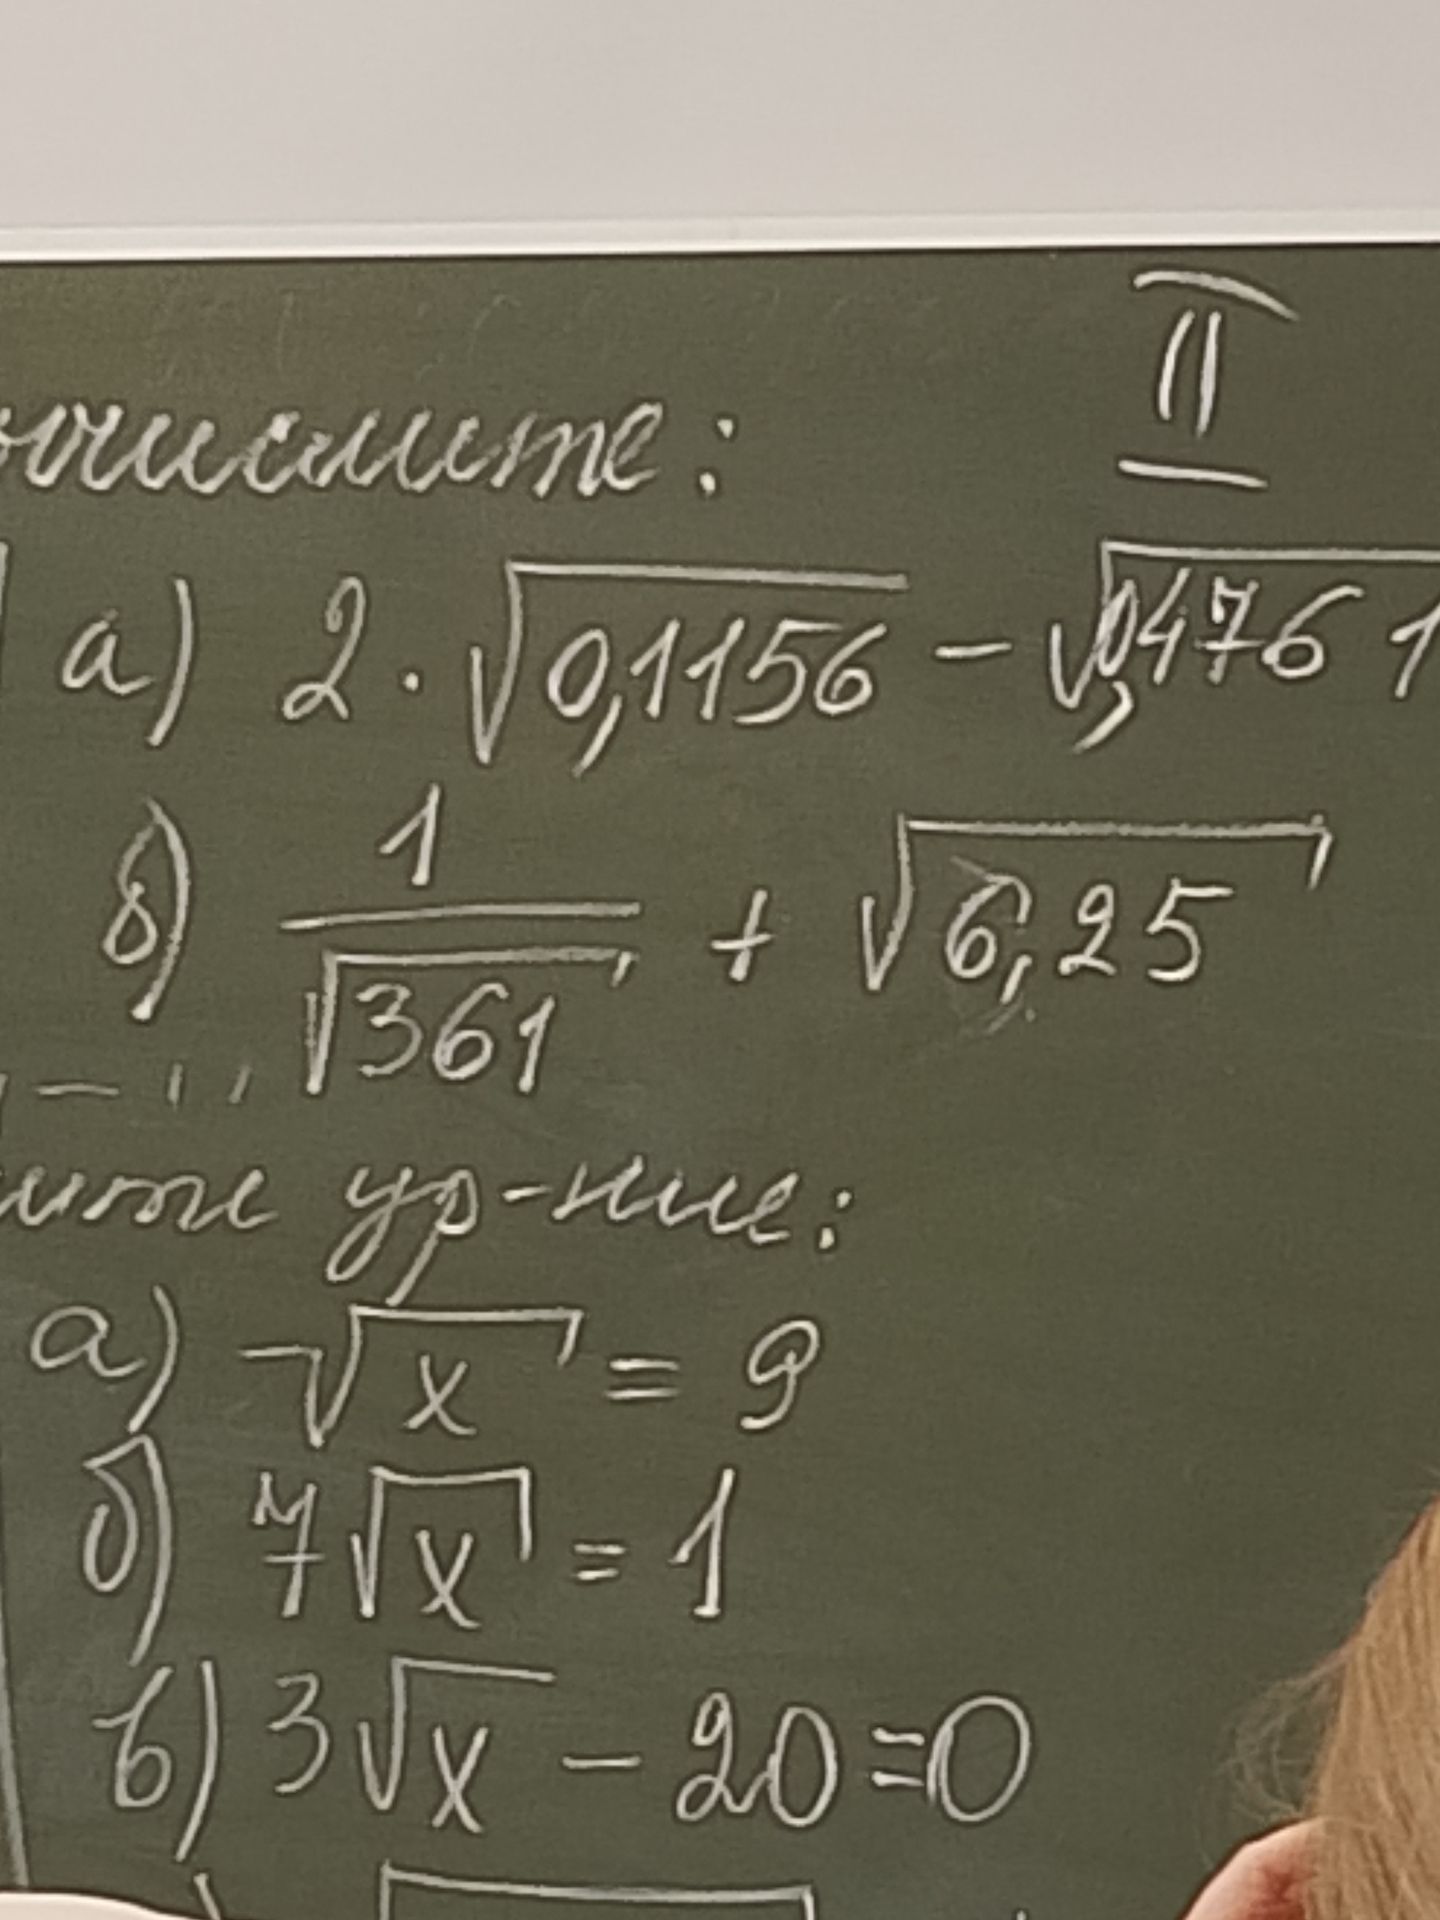 II
вычислите:
а) 2 · √0,1156 − √0,4761
б) 1/√361 + √6,25
ур-ние:
а) −√x = 9
б) 7√x = 1
в) 3√x − 20 = 0